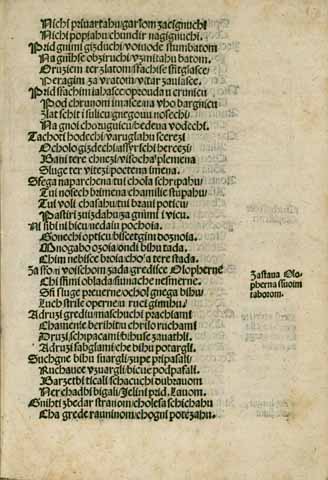 Nichi priuartahu garlom zaeignuchi
Nichi popiahu chundir nagignuchi.
Prid gnimi gizduchi voiuode stumbatom
Na gnihse obziruchi vzmitahu batom.
Oruziem ter zlatom ssachise
Peragim za vratom vitar zauiasse.
Prid ssachim iahasce opeouda u crunicu
Pod chrunom imasce na vho bargnicu
Zlat schit i sulicu gnegouu nosechi
Na gnoi choruguicu bedeua vodechi.
Tachoei hodechi varuglahu scerezi
Ocholo gizdechi assyrschi hercezi
Bani tere chnezi visocha plemena
Sluge ter vitezi poctena imena.
Sfega naparchena tui chola schripahu
Tui nosech brimena chamilie stupahu
Tui voli chasahu tui braui poticu
Pastiri zuizdahu za gnimi i vicu.
Al sibi ni bicu nedaiu pochoia.
Gonechi opticu biscetgim doznoia.
Mnogabo ozoia ondi bihu tada.
Chim nebisce broia cho'a tere stada.
Za sfom voischom zada gredisce Olopherne
Chi stimi oblada suinache nesmerne.
Sfi sluge prieuerne ochol gnega bihu
Luchstrile operneni ruci gimihu
A druzi gredium aschuchi prachiami
Chamenie berihitiu chrilo ruchami
Druzi schipacami bihu se zauatili.
A druzi sabglami che bihu potargli.
Suchgne bihu suargli zupe pripasali
Ruchauce vzuargli bicue podpasali.
Barzetbi ticali schacuchi dubrauom
Ner chadbi bigali Jelini prid. Lauom.
Gnihti zbedar stranom cholesa schichahu
Cha grede rauninom chogni potezahu.
Zastaua Olo⸗
pherna suoim
taborom.